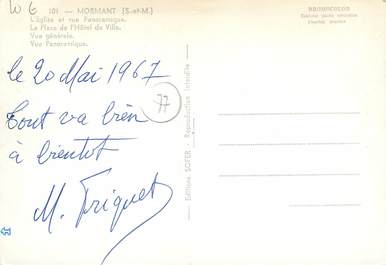 W 6
101 - MORMANT (S.-et-M.)
L'Église et rue Panoramique.
La Place de l'Hôtel de Ville.
Vue générale.
Vue Panoramique.
le 20 Mai 1967
77
Tout va bien
à bientot
M. Friquet
Editions SOFER - Reproduction Interdite